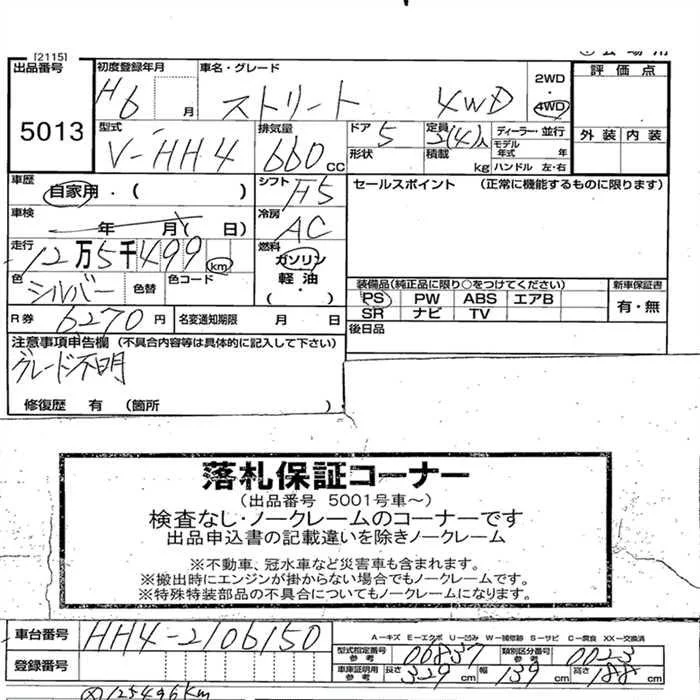 [2115]
出品番号
5013
初度登録年月 H6 月
車名・グレード ストリート 4WD
2WD・4WD
評価点
外装 内装
型式 V-HH4
排気量 660 cc
ドア 5
定員 2(4)人
形状
積載 kg
ディーラー・並行
モデル年式 年
ハンドル 左・右
車歴 自家用・( )
シフト F5
セールスポイント (正常に機能するものに限ります)
車検 年 月( 日)
冷房 AC
走行 12万5千499 km
燃料 ガソリン・軽油・( )
色 シルバー 色替 色コード
装備品(純正品に限り○をつけてください)
新車保証書
PS PW ABS エアB
有・無
SR ナビ TV
R券 6270 円 名変通知期限 月 日
後日品
注意事項申告欄 (不具合内容等は具体的に記入して下さい)
グレード不明
修復歴 有 (箇所 )
落札保証コーナー
(出品番号 5001号車~)
検査なし・ノークレームのコーナーです
出品申込書の記載違いを除きノークレーム
※不動車、冠水車など災害車も含まれます。
※搬出時にエンジンが掛からない場合でもノークレームです。
※特殊特装部品の不具合についてもノークレームになります。
車台番号 HH4-2106150
A-キズ E-エクボ U-凹み W-補修跡 S-サビ C-腐食 XX-交換済
型式指定番号参考 06837 類別区分番号参考 0023
登録番号
車庫証明用参考 長さ 329 cm 幅 139 cm 高さ 188 cm
125496km